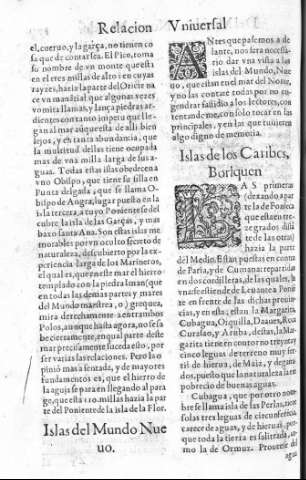 Relacion Vniuersal
el, cueruo, y la garça, no tienen co
sa que de contar sea. El Pico, toma
su nombre de vn monte que está
en el tres millas de alto: en cuyas
rayzes, hazia la parte del Oriẽte na
ce vn manãtial que algunas vezes
vomita llamas, y lança piedras ar
dientes con tanto impetu que lle-
gan al mar aũque está de alli bien
lejos, y en tanta abundancia, que
la multitud dellas tiene ocupada
mas de vna milla larga de sus a-
guas. Todas estas islas obedecen a
vn Obispo, que tiene su silla en
Punta delgada, que se llama O-
bispo de Angra, lugar puesta en la
isla tercera, a cuyo Poniente se des
cubre la isla de las Garças, y mas
baxo santa Ana. Son estas islas me
morables por vn oculto secreto de
naturaleza, descubierto por la ex-
periencia larga de los Marineros,
el qual es, que en este mar el hierro
templado con la piedra imanque
en todas las demas partes y mares
del Mundo
mira derechamente a entrambos
Polos, aunque hasta agora, no se sa
be ciertamente, en qual parte deste
mar precisamente suceda esto, por
ser varias las relaciones. Pero la o
pinió mas assentada, y de mayores
fundamentos es, que el hierro de
la aguja se para en llegando al para
ge, que está 110. millas hazia la par
te del Poniente de la isla de la Flor.
Islas del Mundo Nue
uo.
ANtes que passemos a de
lante, nos sera necessa-
rio dar vna vista a las
islas del Mundo, Nue
uo, que estan en el mar del Norte,
y no las contare todas por no en-
gendrar fastidio a los lectores, con
tentandome, con solo tocar en las
principales, y en las que tuuieren
algo digno de memoria.
Islas de los Caribes,
Boriquen
LAS primeras
(dexando apar
te la de Poniẽca
que esta en tre-
zegrados distã
te de las otras)
hazia la parte
del Medio. Estas puestas en contra
de Paria, y de Cumana repartidas
en dos cordilleras, de las quales, la
vna se estiende de Leuante a Ponie
te en frente de las dichas prouin-
cias, y en esta, estan la Margarita
Cubagua, Orquilla, Daaues, Roca
Curaláo, y Aruba, destas, la Mar
garita tiene en contorno treynta y
cinco leguas de terreno muy fer-
til de hierua, de Maiz, y de gana
dos, puesto que la naturaleza la em
pobrecio de buenas aguas.
Cubagua, que por otro nom
bre se llama isla de las Perlas, tiene
solas tres leguas de circunferẽcia
carece de aguas, y de hierua, por-
que toda la tierra es salitrada, co-
mo la de Ormuz. Proueese de
agua